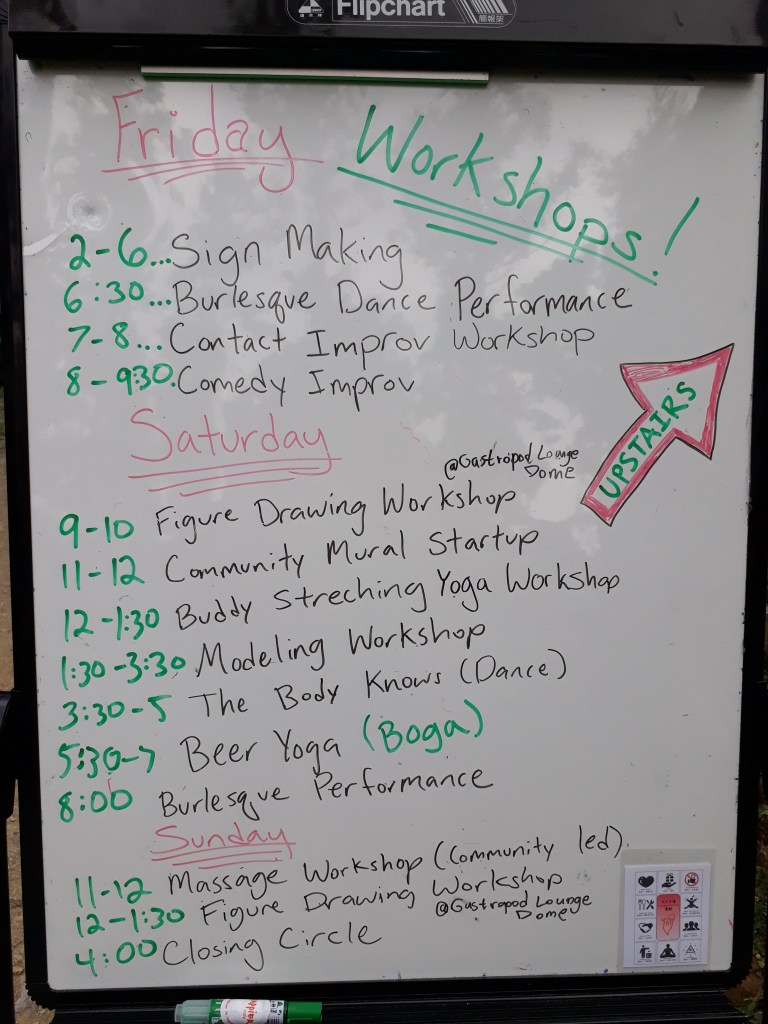 Flipchart
簡報架
Friday Workshops!
2-6...Sign Making
6:30...Burlesque Dance Performance
7-8...Contact Improv Workshop
8-9:30.Comedy Improv
UPSTAIRS
Saturday
@Gastropod Lounge
Dome
9-10 Figure Drawing Workshop
11-12 Community Mural Startup
12-1:30 Buddy Streching Yoga Workshop
1:30-3:30 Modeling Workshop
3:30-5 The Body Knows (Dance)
5:30-7 Beer Yoga (Boga)
8:00 Burlesque Performance
Sunday
11-12 Massage Workshop (Community led).
12-1:30 Figure Drawing Workshop
@Gastropod Lounge
Dome
4:00 Closing Circle